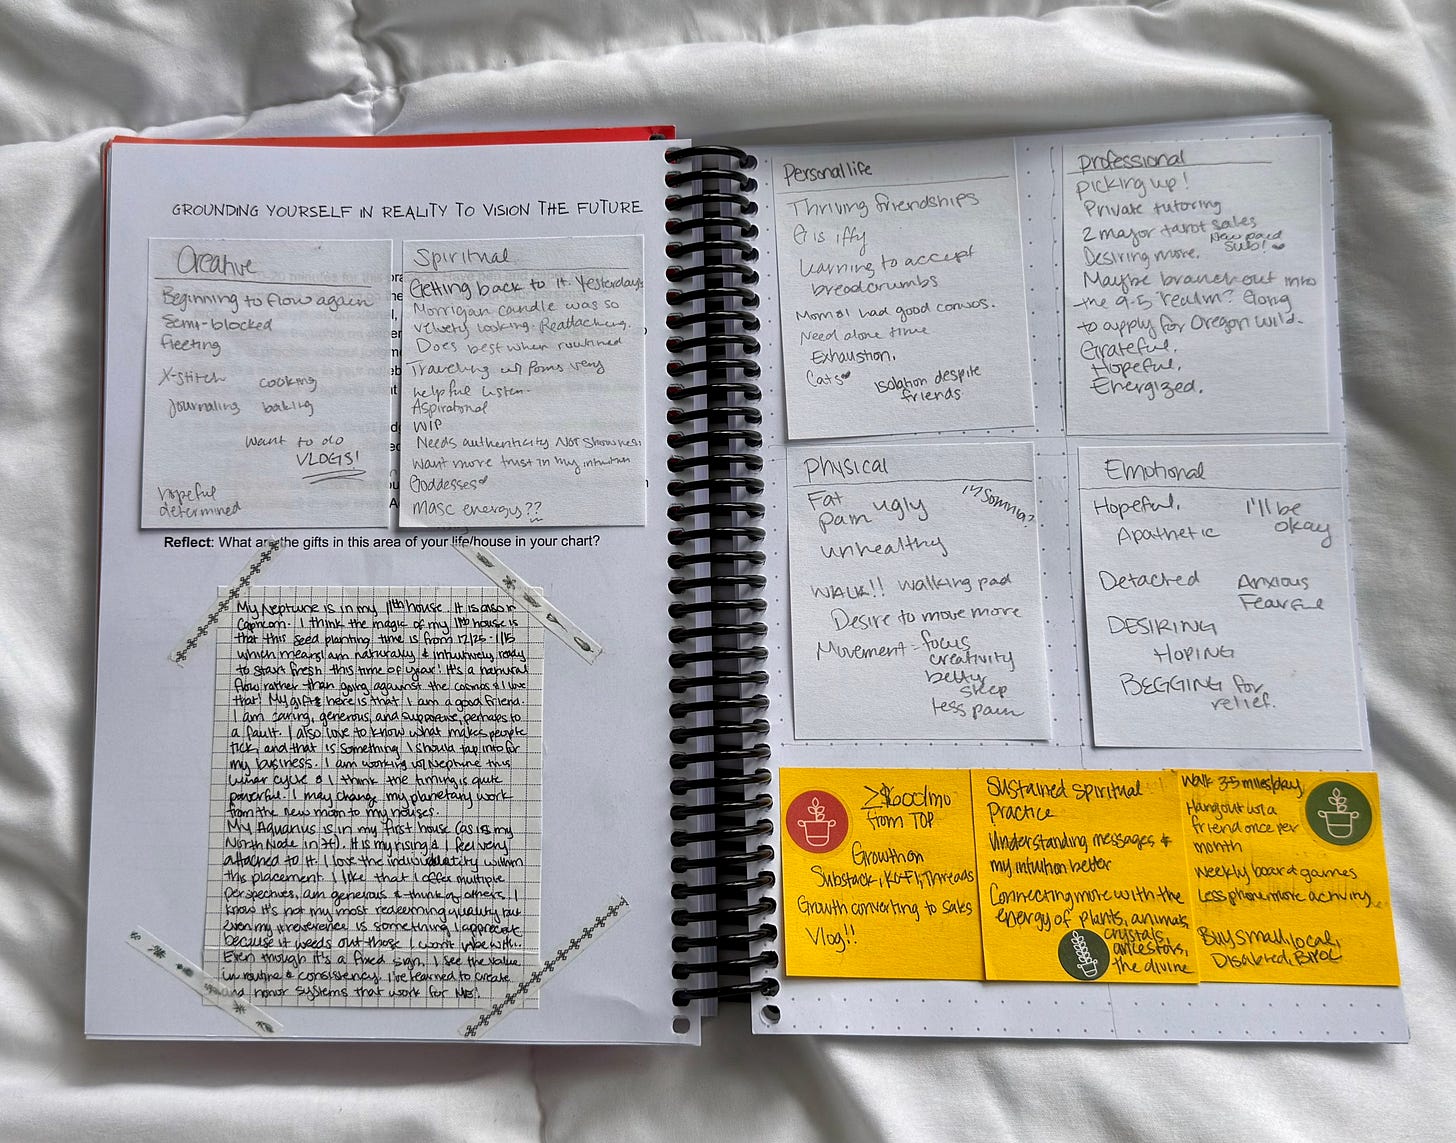 GROUNDING YOURSELF IN REALITY TO VISION THE FUTURE
Creative
Beginning to flow again
Semi-blocked
fleeting
X-stitch cooking
journaling baking
want to do
VLOGS!
hopeful
determined
Spiritual
Getting back to it. Yesterday's
Morrigan candle was so
velvety looking. Reattaching.
Does best when routined
Traveling w/ Poms very
helpful listen.
Aspirational
WIP
Needs authenticity NOT showiness
Want more trust in my intuition
Goddesses
masc energy??
Reflect: What are the gifts in this area of your life/house in your chart?
My Neptune is in my 11th house. It is also in
Capricorn. I think the magic of my 11th house is
that this seed planting time is from 12/25-1/15
which means I am naturally & intuitively ready
to start fresh this time of year! It's a natural
flow rather than going against the cosmos & I love
that! My gift here is that I am a good friend.
I am caring, generous, and supportive, perhaps to
a fault. I also love to know what makes people
tick, and that is something I should tap into for
my business. I am working w/ Neptune this
lunar cycle & I think the timing is quite
powerful. I may change my planetary work
from the new moon to my houses.
My Aquarius is in my first house (as is my
North Node in it). It is my rising & I feel very
attached to it. I love the individuality within
this placement. I like that I offer multiple
perspectives, am generous & thinking others. I
know it's not my most redeeming quality but
even my irreverence is something I appreciate
because it weeds out those I won't vibe with.
Even though it's a fixed sign, I see the value
in routine & consistency. I've learned to create
and honor systems that work for ME!
Personal life
Thriving friendships
G is iffy
Learning to accept
breadcrumbs
Mom & I had good convos.
Need alone time
Exhaustion.
Cats
isolation despite
friends
professional
picking up!
Private tutoring
2 major tarot sales
New paid
sub!
Desiring more.
Maybe branch out into
the 9-5 "realm"? Going
to apply for Oregon Wild.
Grateful.
Hopeful.
Energized.
Physical
Fat
pain ugly
insomnia?
unhealthy
WALK!! walking pad
Desire to move more
Movement = focus
creativity
better
sleep
less pain
Emotional
Hopeful. I'll be
okay
Apathetic
Detached Anxious
Fearful
DESIRING
HOPING
BEGGING for
relief.
≥$600/mo
from TOP
Growth on
Substack, Ko-Fi, Threads
Growth converting to sales
Vlog!!
Sustained Spiritual
Practice
Understanding messages &
my intuition better
Connecting more with the
energy of plants, animals,
crystals,
ancestors,
the divine
Walk 3-5 miles/day
Hang out w/ a
friend once per
month
Weekly board games
Less phone more activity
Buy small, local,
Disabled, BIPOC